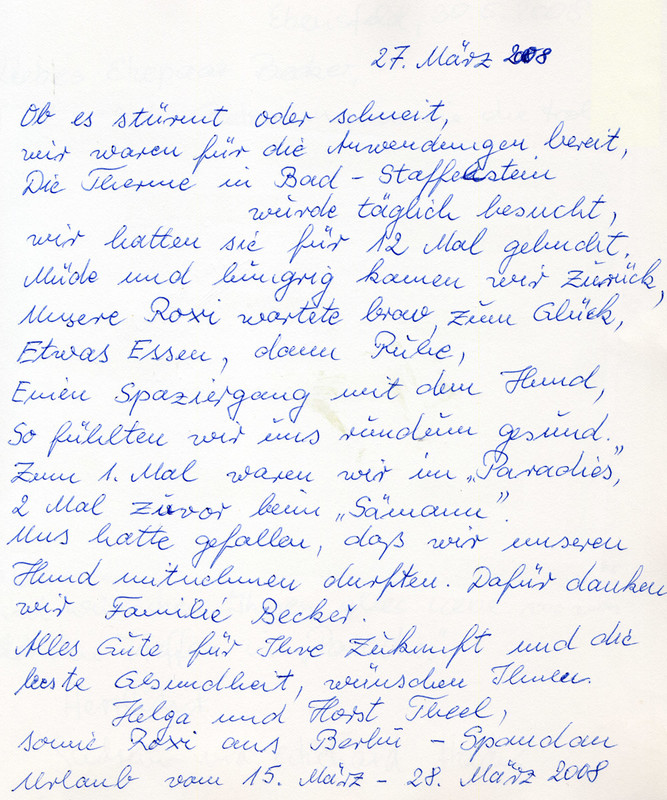 27. März 2008
Ob es stürmt oder schneit,
wir waren für die Anwendungen bereit,
Die Therme in Bad - Staffelstein
wurde täglich besucht,
wir hatten sie für 12 Mal gebucht,
Müde und hungrig kamen wir zurück,
Unsere Roxi wartete brav, zum Glück,
Etwas Essen, dann Ruhe,
Einen Spaziergang mit dem Hund,
So fühlten wir uns rundum gesund.
Zum 1. Mal waren wir im „Paradies",
2 Mal zuvor beim „Sämann".
Uns hatte gefallen, daß wir unseren
Hund mitnehmen durften. Dafür danken
wir Familie Becker.
Alles Gute für Ihre Zukunft und die
beste Gesundheit, wünschen Ihnen.
Helga und Horst Theel,
sowie Roxi aus Berlin - Spandau
Urlaub vom 15. März - 28. März 2008